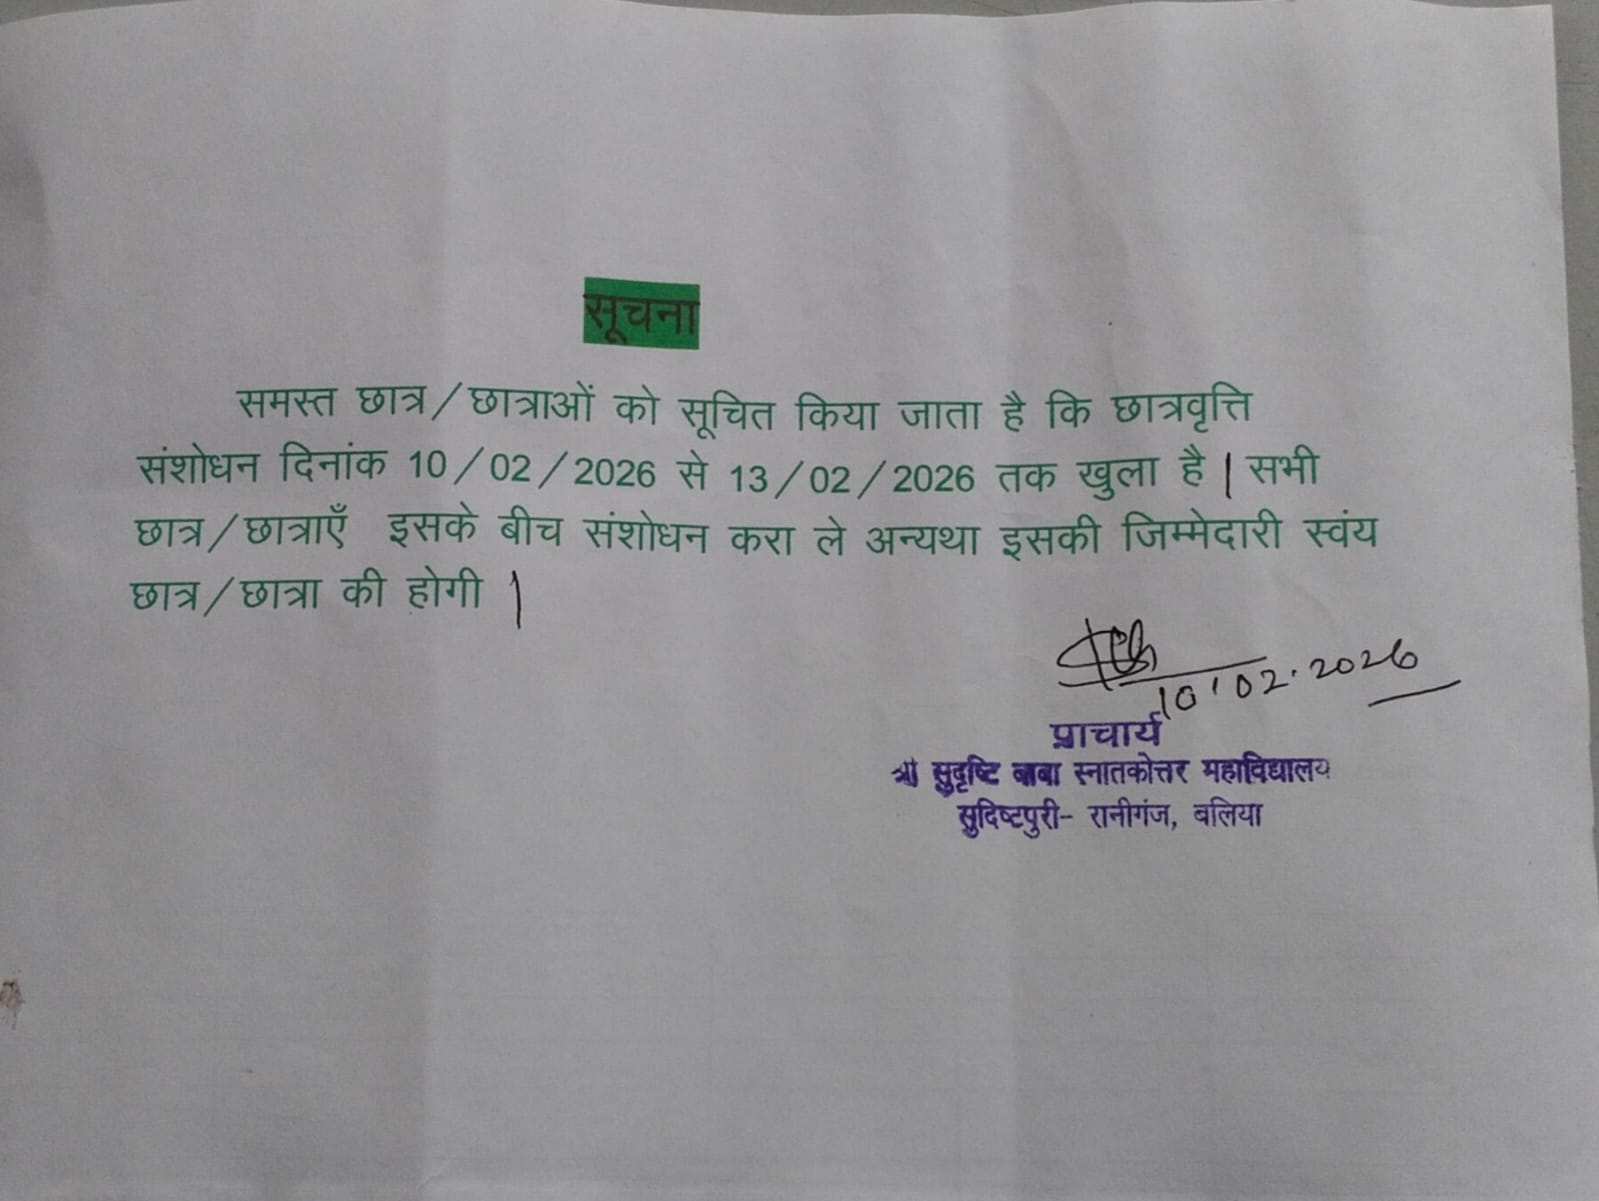 सूचना
समस्त छात्र/छात्राओं को सूचित किया जाता है कि छात्रवृत्ति
संशोधन दिनांक 10/02/2026 से 13/02/2026 तक खुला है | सभी
छात्र/छात्राएँ इसके बीच संशोधन करा ले अन्यथा इसकी जिम्मेदारी स्वंय
छात्र/छात्रा की होगी |
10.02.2026
प्राचार्य
श्री सुदृष्टि बाबा स्नातकोत्तर महाविद्यालय
सुदिष्टपुरी- रानीगंज, बलिया